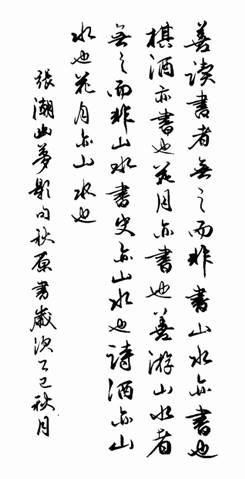 善读書者無之而非書山水亦書也
棋酒亦書也花月亦書也善游山水者
無之而非山水書史亦山水也詩酒亦山
水也花月亦山水也
張潮幽夢影句秋原書歲次乙巳秋月